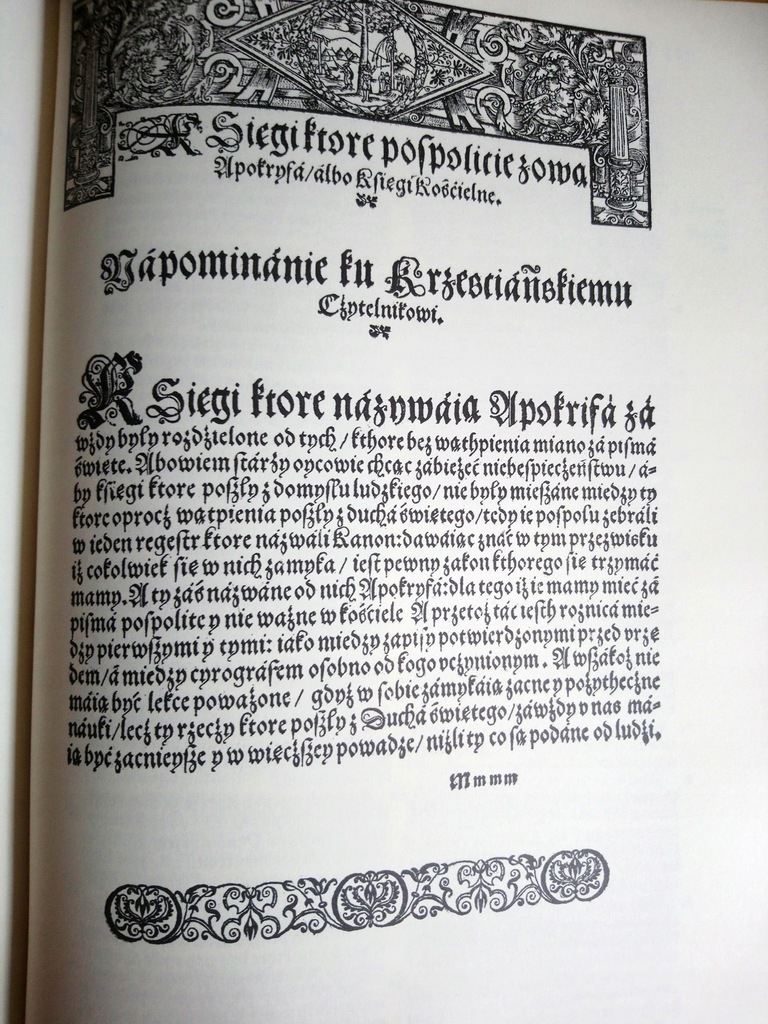 KSięgi ktore pospolicie zową
Apokryfá/ álbo Kśięgi Kośćielne.
Nápominánie ku Krześciáńskiemu
Cżytelnikowi.
KSięgi ktore názywáią Apokrifá zá
wżdy były rozdżielone od tych / kthore bez wąthpienia miano zá pismá
święte. Abowiem stárży oycowie chcąc zábieżeć niebespiecżeństwu / á-
by kśięgi ktore poszły z domysłu ludzkiego / nie były mieszáne miedzy ty
ktore oprocż wątpienia poszły z duchá świętego / tedy ie pospołu zebráli
w ieden regestr ktore názwáli Kanon: dawáiąc znáć w tym przezwisku
iż cokolwiek się w nich zámyka / iest pewny zakon kthorego się trzymáć
mamy. A ty záś názwáne od nich Apokryfá: dla tego iż ie mamy mieć zá
pismá pospolite y nie ważne w kościele A przetoż tác iesth roznicá mie-
dzy pierwszymi y tymi: iáko miedzy zapisy potwierdzonymi przed vrzę
dem / á miedzy cyrográfem osobno od kogo vcżynionym. A wszákoż nie
máią być lekce poważone / gdyż w sobie zámykáią zacne y pożythecżne
náuki / lecż ty rzecży ktore poszły z Duchá świętego / záwżdy v nas má-
ią być zacnieysze y w więcższey powadze / niżli ty co są podáne od ludźi.
Mmmm